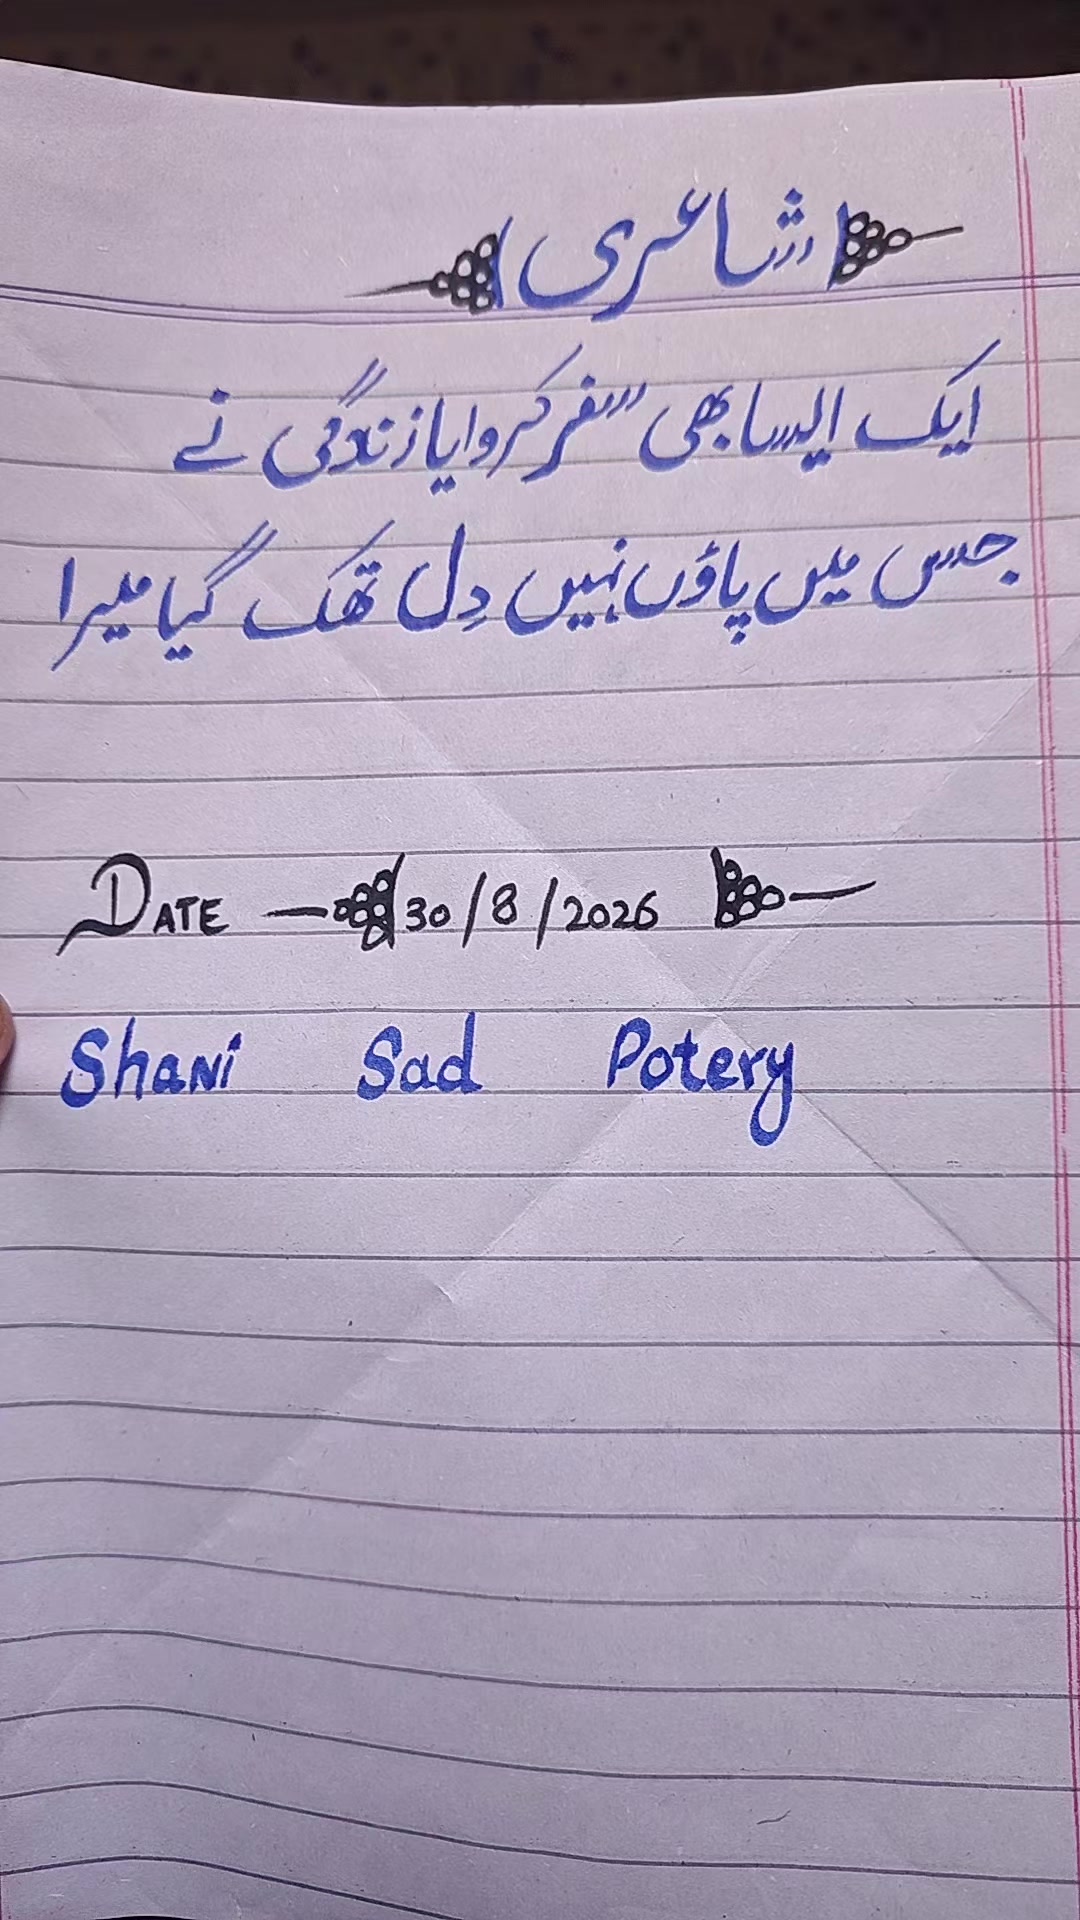 شاعری
ایک ایسا بھی سفر کروایا زندگی نے
جس میں پاؤں نہیں دِل تھک گیا میرا
DATE 30/8/2026
Shani Sad Potery